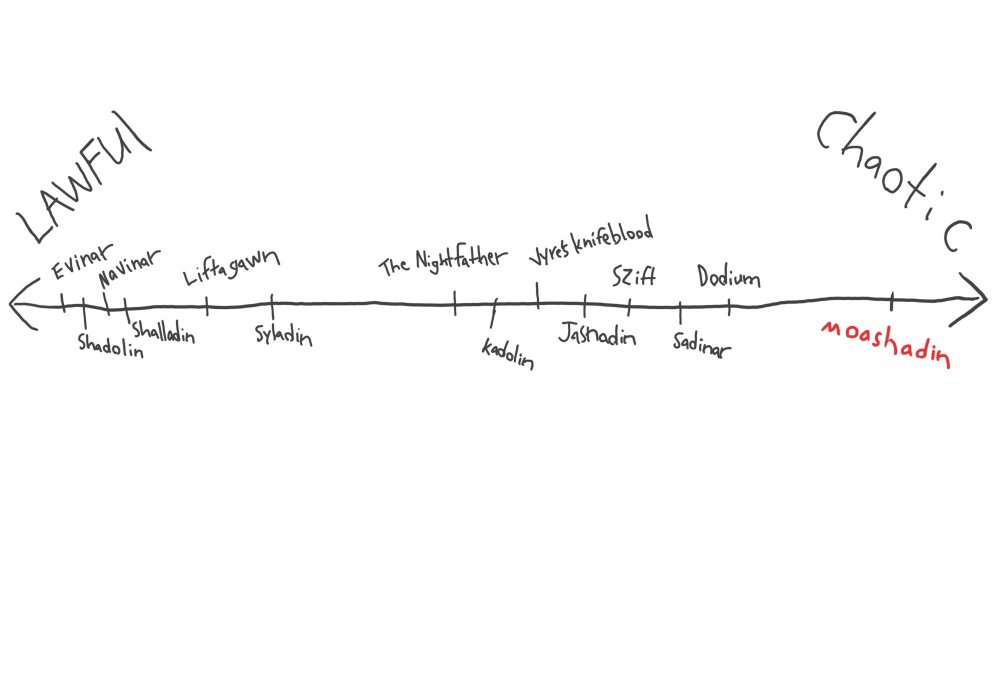 LAWFUL
Chaotic
Evinar
Navinar
Liftagawn
The Nightfather
Jyres Knifeblood
Szift
Dodium
Shadolin
Shalladin
Syladin
Kadolin
Jashadin
Sadinar
moashadin